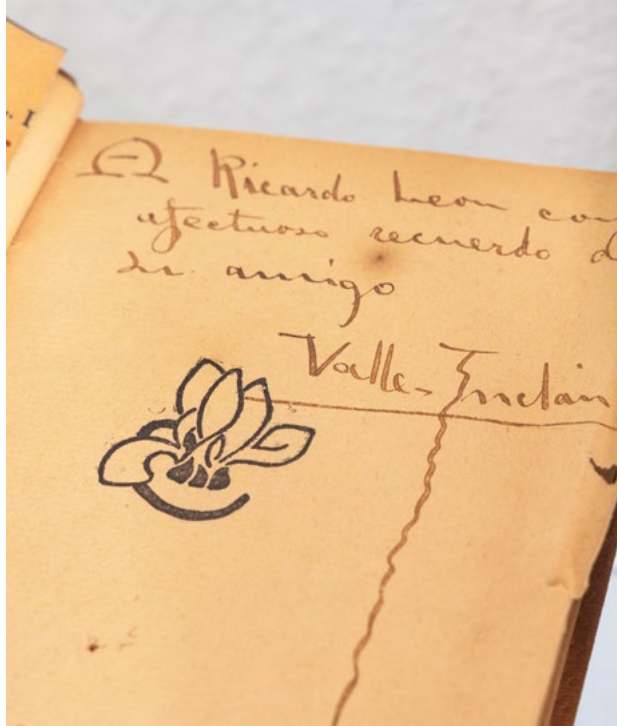 A Ricardo Leon con
afectuoso recuerdo d
su amigo
Valle-Inclán